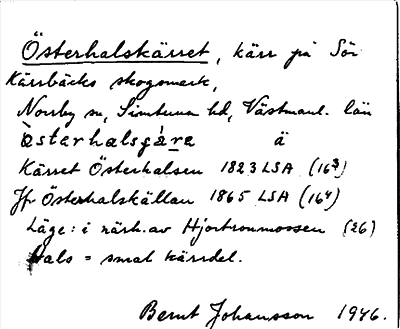 Österhalskärret, kärr på Sör
Kärrbäcks skogsmark,
Norrby sn, Simtuna hd, Västmanl. län
òsterhalsçá̱re ä
Kärret Österhalsen 1823 LSA (16³)
Jfr Österhalskällan 1865 LSA (16⁴)
Läge: i närh. av Hjortronmossen (26)
Hals = smal kärrdel.
Bernt Johansson 1946.